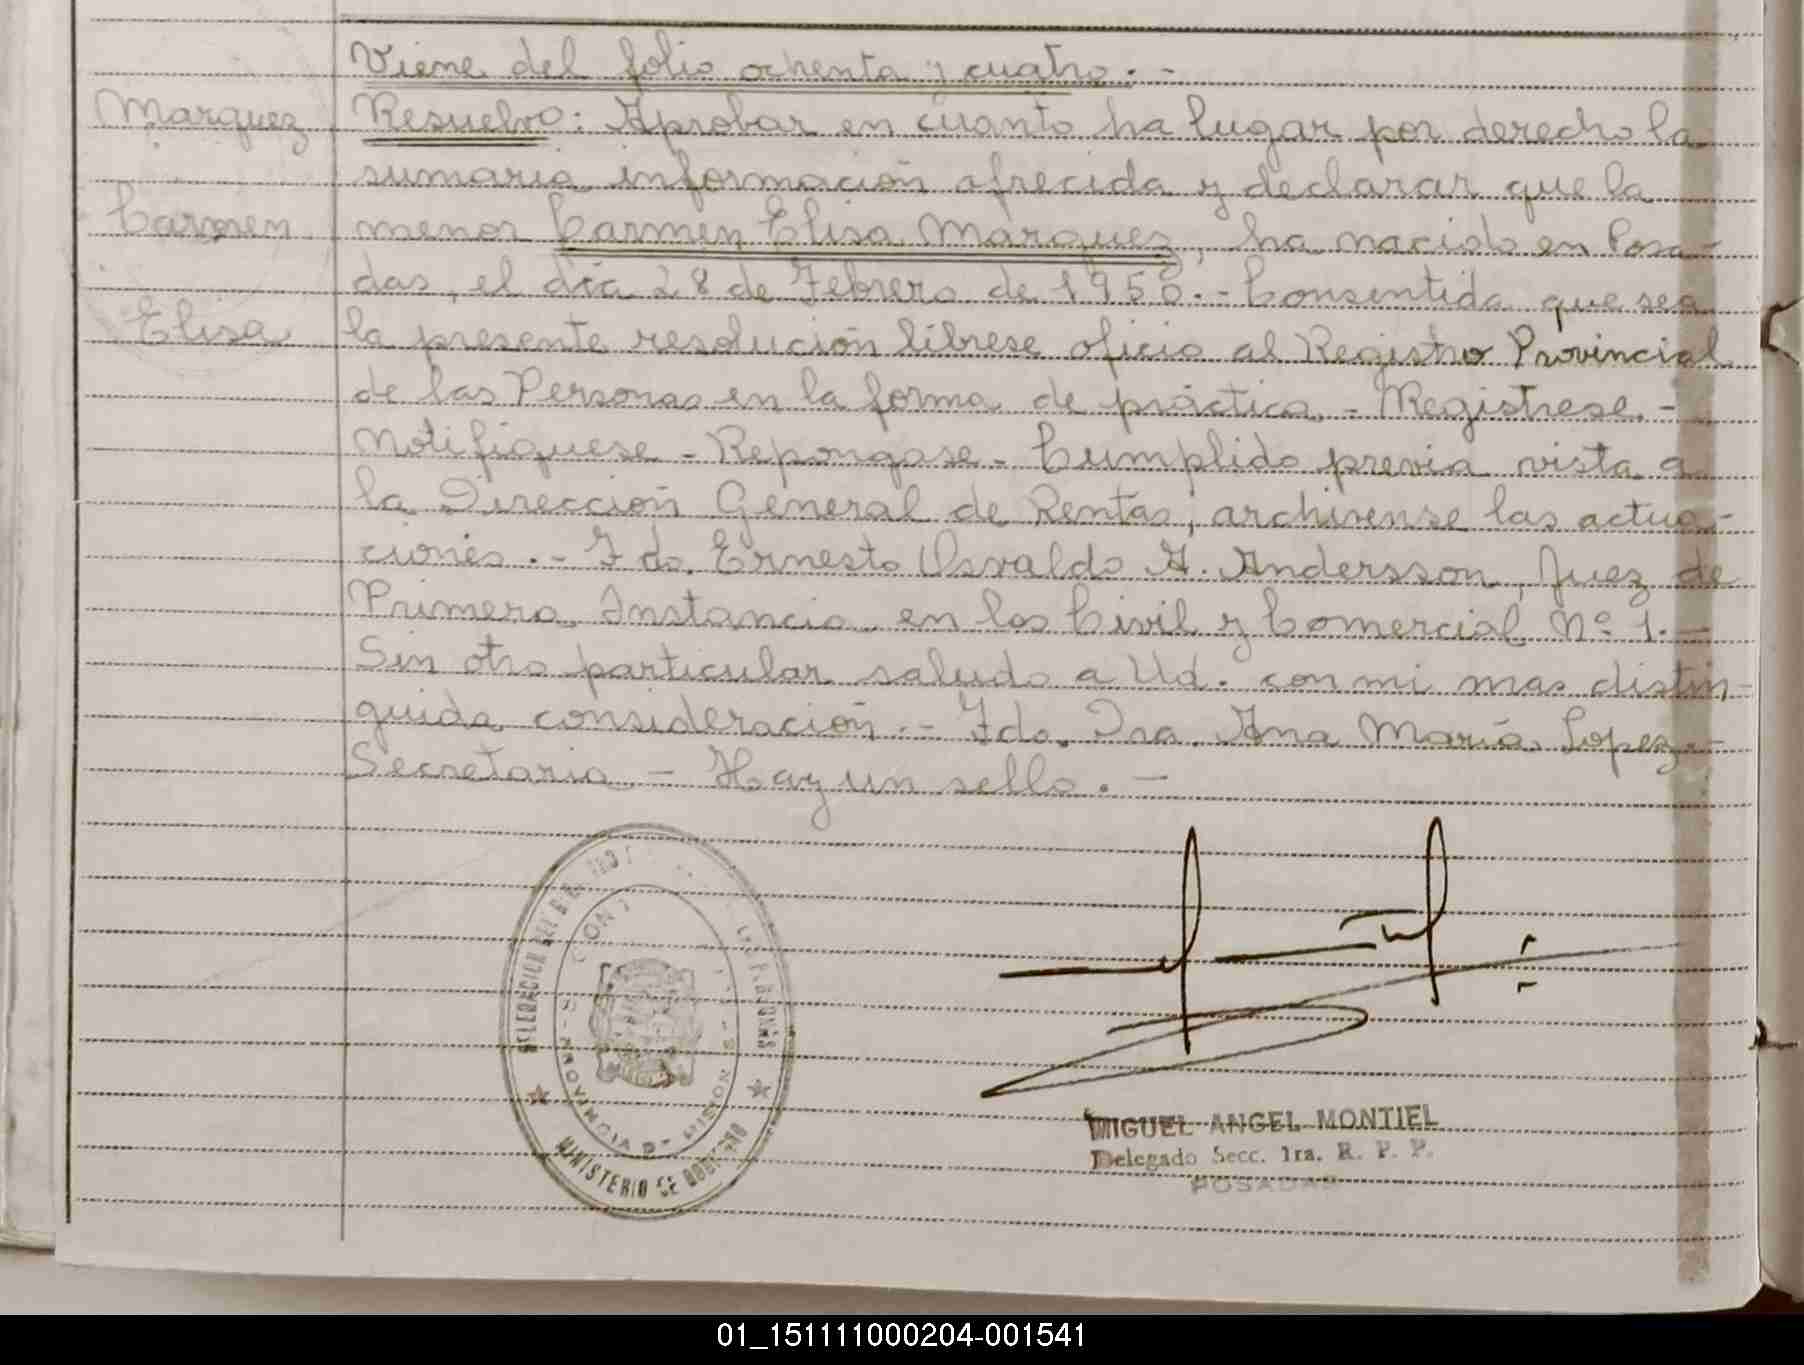 Viene del folio ochenta y cuatro.-
Marquez
Resuelvo: Aprobar en cuanto ha lugar por derecho la
sumaria información ofrecida y declarar que la
Carmen
menor Carmen Elisa Marquez, ha nacido en Posa-
das, el día 28 de Febrero de 1950.- Consentida que sea
Elisa
la presente resolución líbrese oficio al Registro Provincial
de las Personas en la forma de práctica.- Registrese.-
Notifiquese - Repongase - Cumplido previa vista a
la Dirección General de Rentas, archivense las actua-
ciones.- Fdo. Ernesto Osvaldo A. Andersson, Juez de
Primera Instancia en los Civil y Comercial Nº 1.-
Sin otro particular saludo a Ud. con mi mas distin-
guida consideración.- Fdo. Dra. Ana María Lopez.-
Secretaria - Hay un sello.-
PROVINCIA DE MISIONES
MINISTERIO DE GOBIERNO
MIGUEL ANGEL MONTIEL
Delegado Secc. 1ra. R. P. P.
POSADAS
01_151111000204-001541